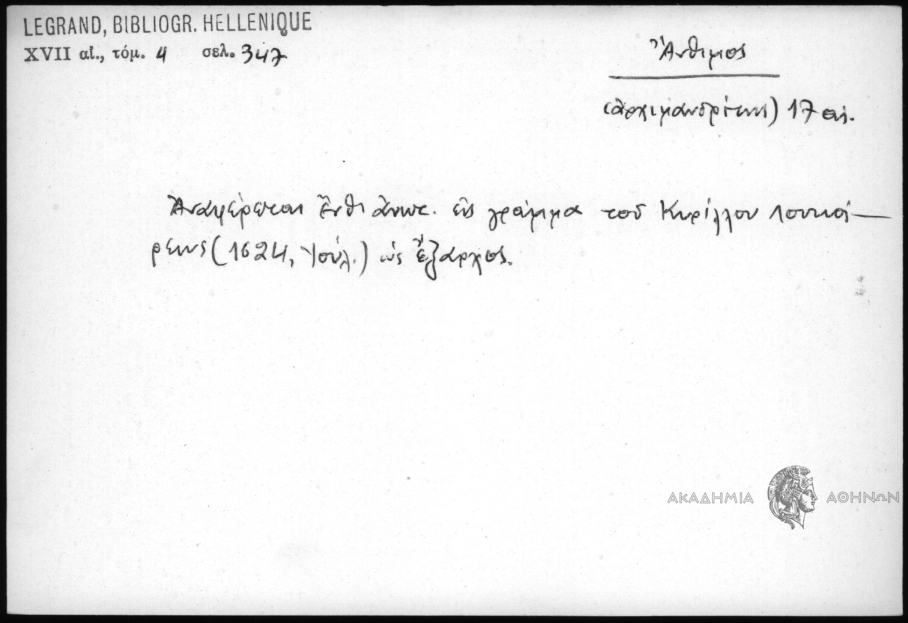 LEGRAND, BIBLIOGR. HELLENIQUE
XVII αἰ., τόμ. 4 σελ. 347
Ἄνθιμος
(ἀρχιμανδρίτης) 17 αἰ.
Ἀναφέρεται ἔνθ' ἀνωτ. εἰς γράμμα τοῦ Κυρίλλου Λουκά-
ρεως (1624, Ἰούλ.) ὡς ἔξαρχος.
ΑΚΑΔΗΜΙΑ ΑΘΗΝΩΝ